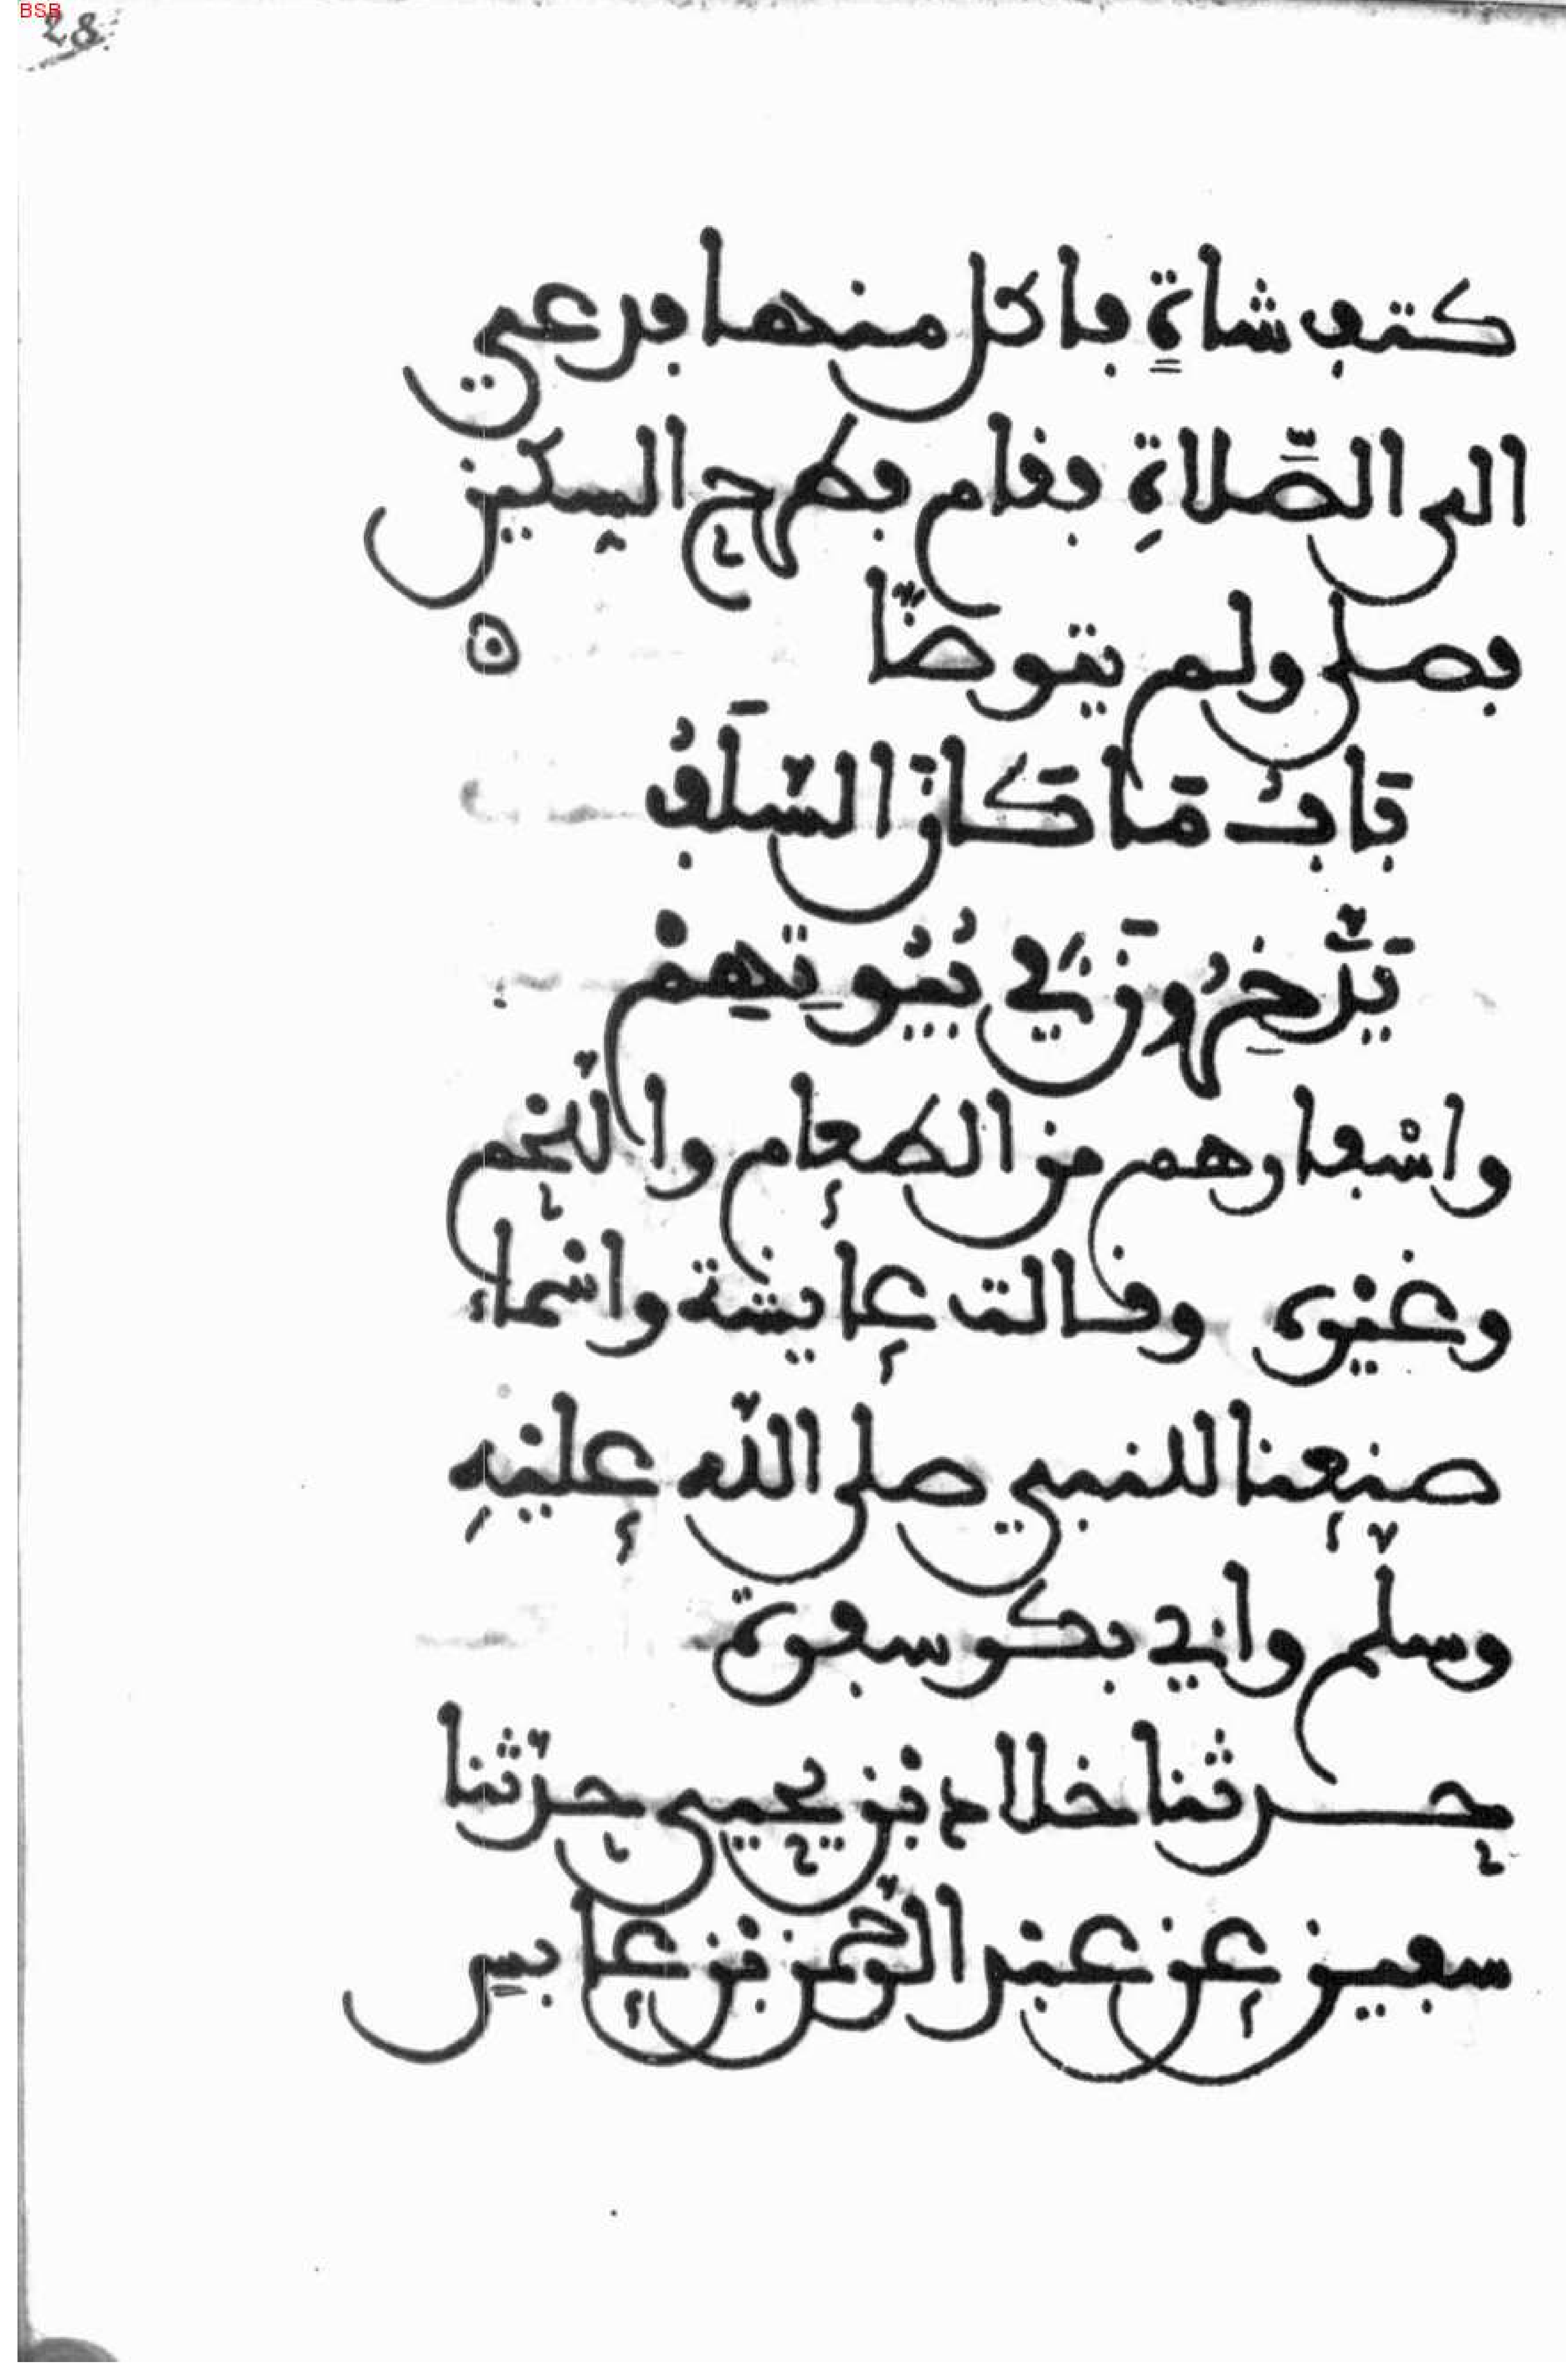 BSB
28
كتف شاةٍ فاكل منها فدعي
الى الصّلاةِ فقام فطرح السكين
فصلى ولم يتوضّا ه
بَابُ مَا كَانَ السَّلَفُ
يَدَّخِرُونَ فِي بُيُوتِهِمْ
واسْفارهم من الطعام واللّحم
وغيْره وقالت عايشة واسْماء
صنعنا للنبي صلى اللّه عليْهِ
وسلّم وابي بكر سفرة
حدثنا خلاد بْن يحيى حدّثنا
سفين عن عبْد الرّحمن بْن عابسٍ